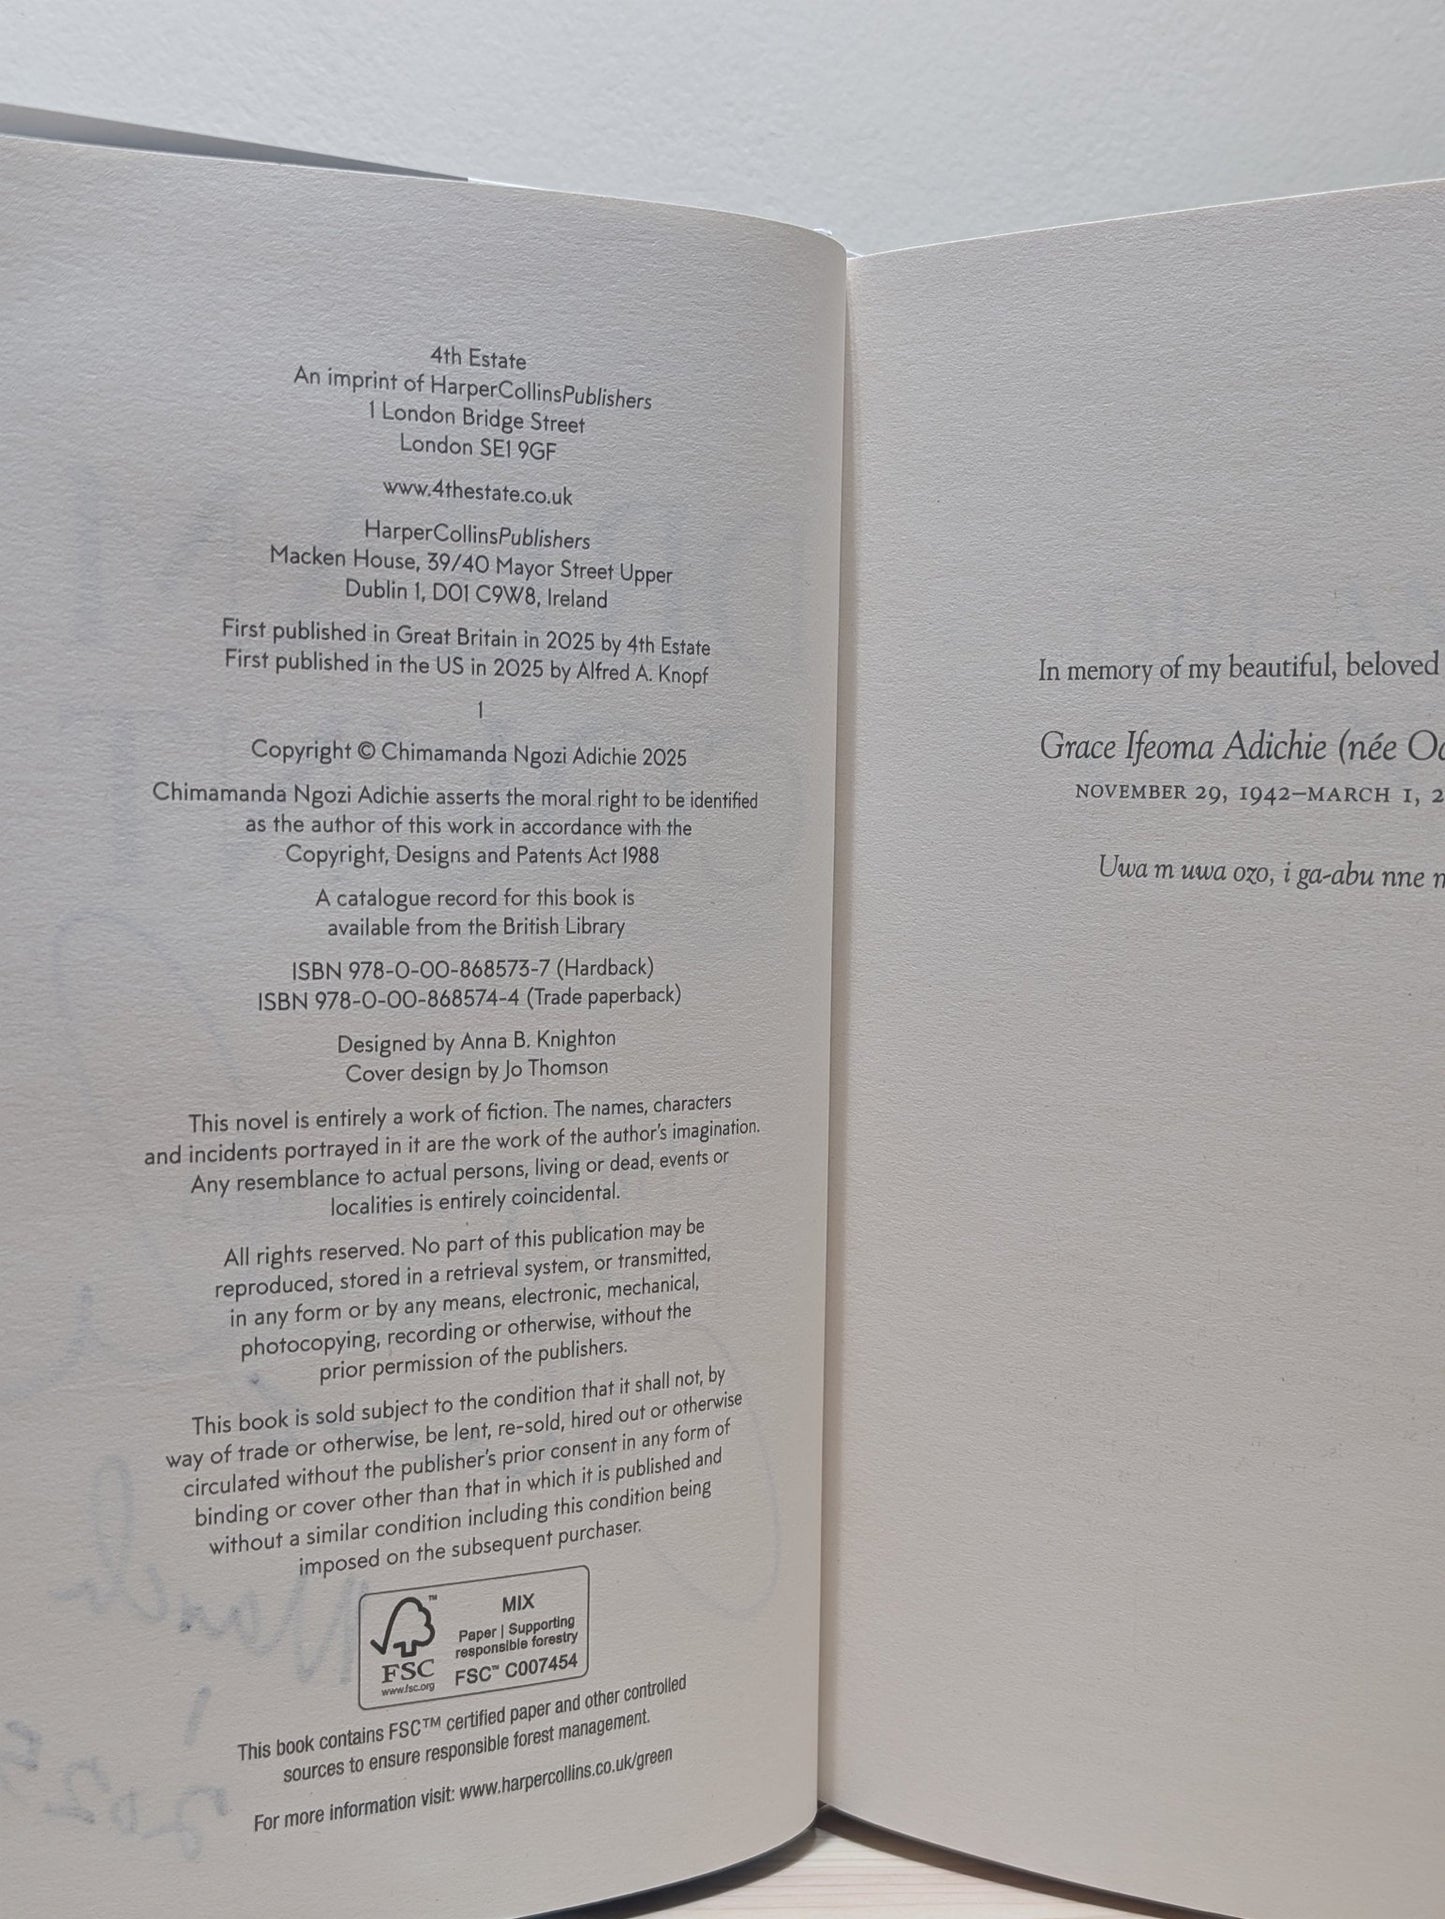 4th Estate
An imprint of HarperCollinsPublishers
1 London Bridge Street
London SE1 9GF
www.4thestate.co.uk
HarperCollinsPublishers
Macken House, 39/40 Mayor Street Upper
Dublin 1, D01 C9W8, Ireland
First published in Great Britain in 2025 by 4th Estate
First published in the US in 2025 by Alfred A. Knopf
1
Copyright © Chimamanda Ngozi Adichie 2025
Chimamanda Ngozi Adichie asserts the moral right to be identified
as the author of this work in accordance with the
Copyright, Designs and Patents Act 1988
A catalogue record for this book is
available from the British Library
ISBN 978-0-00-868573-7 (Hardback)
ISBN 978-0-00-868574-4 (Trade paperback)
Designed by Anna B. Knighton
Cover design by Jo Thomson
This novel is entirely a work of fiction. The names, characters
and incidents portrayed in it are the work of the author's imagination.
Any resemblance to actual persons, living or dead, events or
localities is entirely coincidental.
All rights reserved. No part of this publication may be
reproduced, stored in a retrieval system, or transmitted,
in any form or by any means, electronic, mechanical,
photocopying, recording or otherwise, without the
prior permission of the publishers.
This book is sold subject to the condition that it shall not, by
way of trade or otherwise, be lent, re-sold, hired out or otherwise
circulated without the publisher's prior consent in any form of
binding or cover other than that in which it is published and
without a similar condition including this condition being
imposed on the subsequent purchaser.
FSC
www.fsc.org
MIX
Paper | Supporting
responsible forestry
FSC™ C007454
This book contains FSC™ certified paper and other controlled
sources to ensure responsible forest management.
For more information visit: www.harpercollins.co.uk/green
In memory of my beautiful, beloved
Grace Ifeoma Adichie (née
NOVEMBER 29, 1942–MARCH 1,
Uwa m uwa ozo, i ga-abu nne